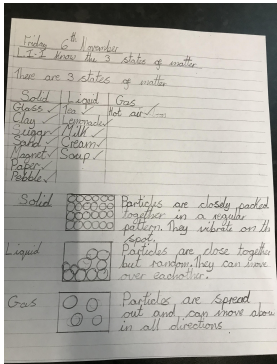 Friday 6th November
L.I- I know the 3 states of matter
There are 3 states of matter
Solid Liquid Gas
Glass ✓ Tea ✓ Hot air ✓
Clay ✓ Lemonade ✓
Sugar ✓ Milk ✓
Sand ✓ Cream ✓
Magnet ✓ Soup ✓
Paper ✓
Pebble ✓
Solid Particles are closely packed
together in a regular
pattern. They vibrate on the
spot.
Liquid Particles are close together
but random. They can move
over eachother.
Gas Particles are spread
out and can move
in all directions.